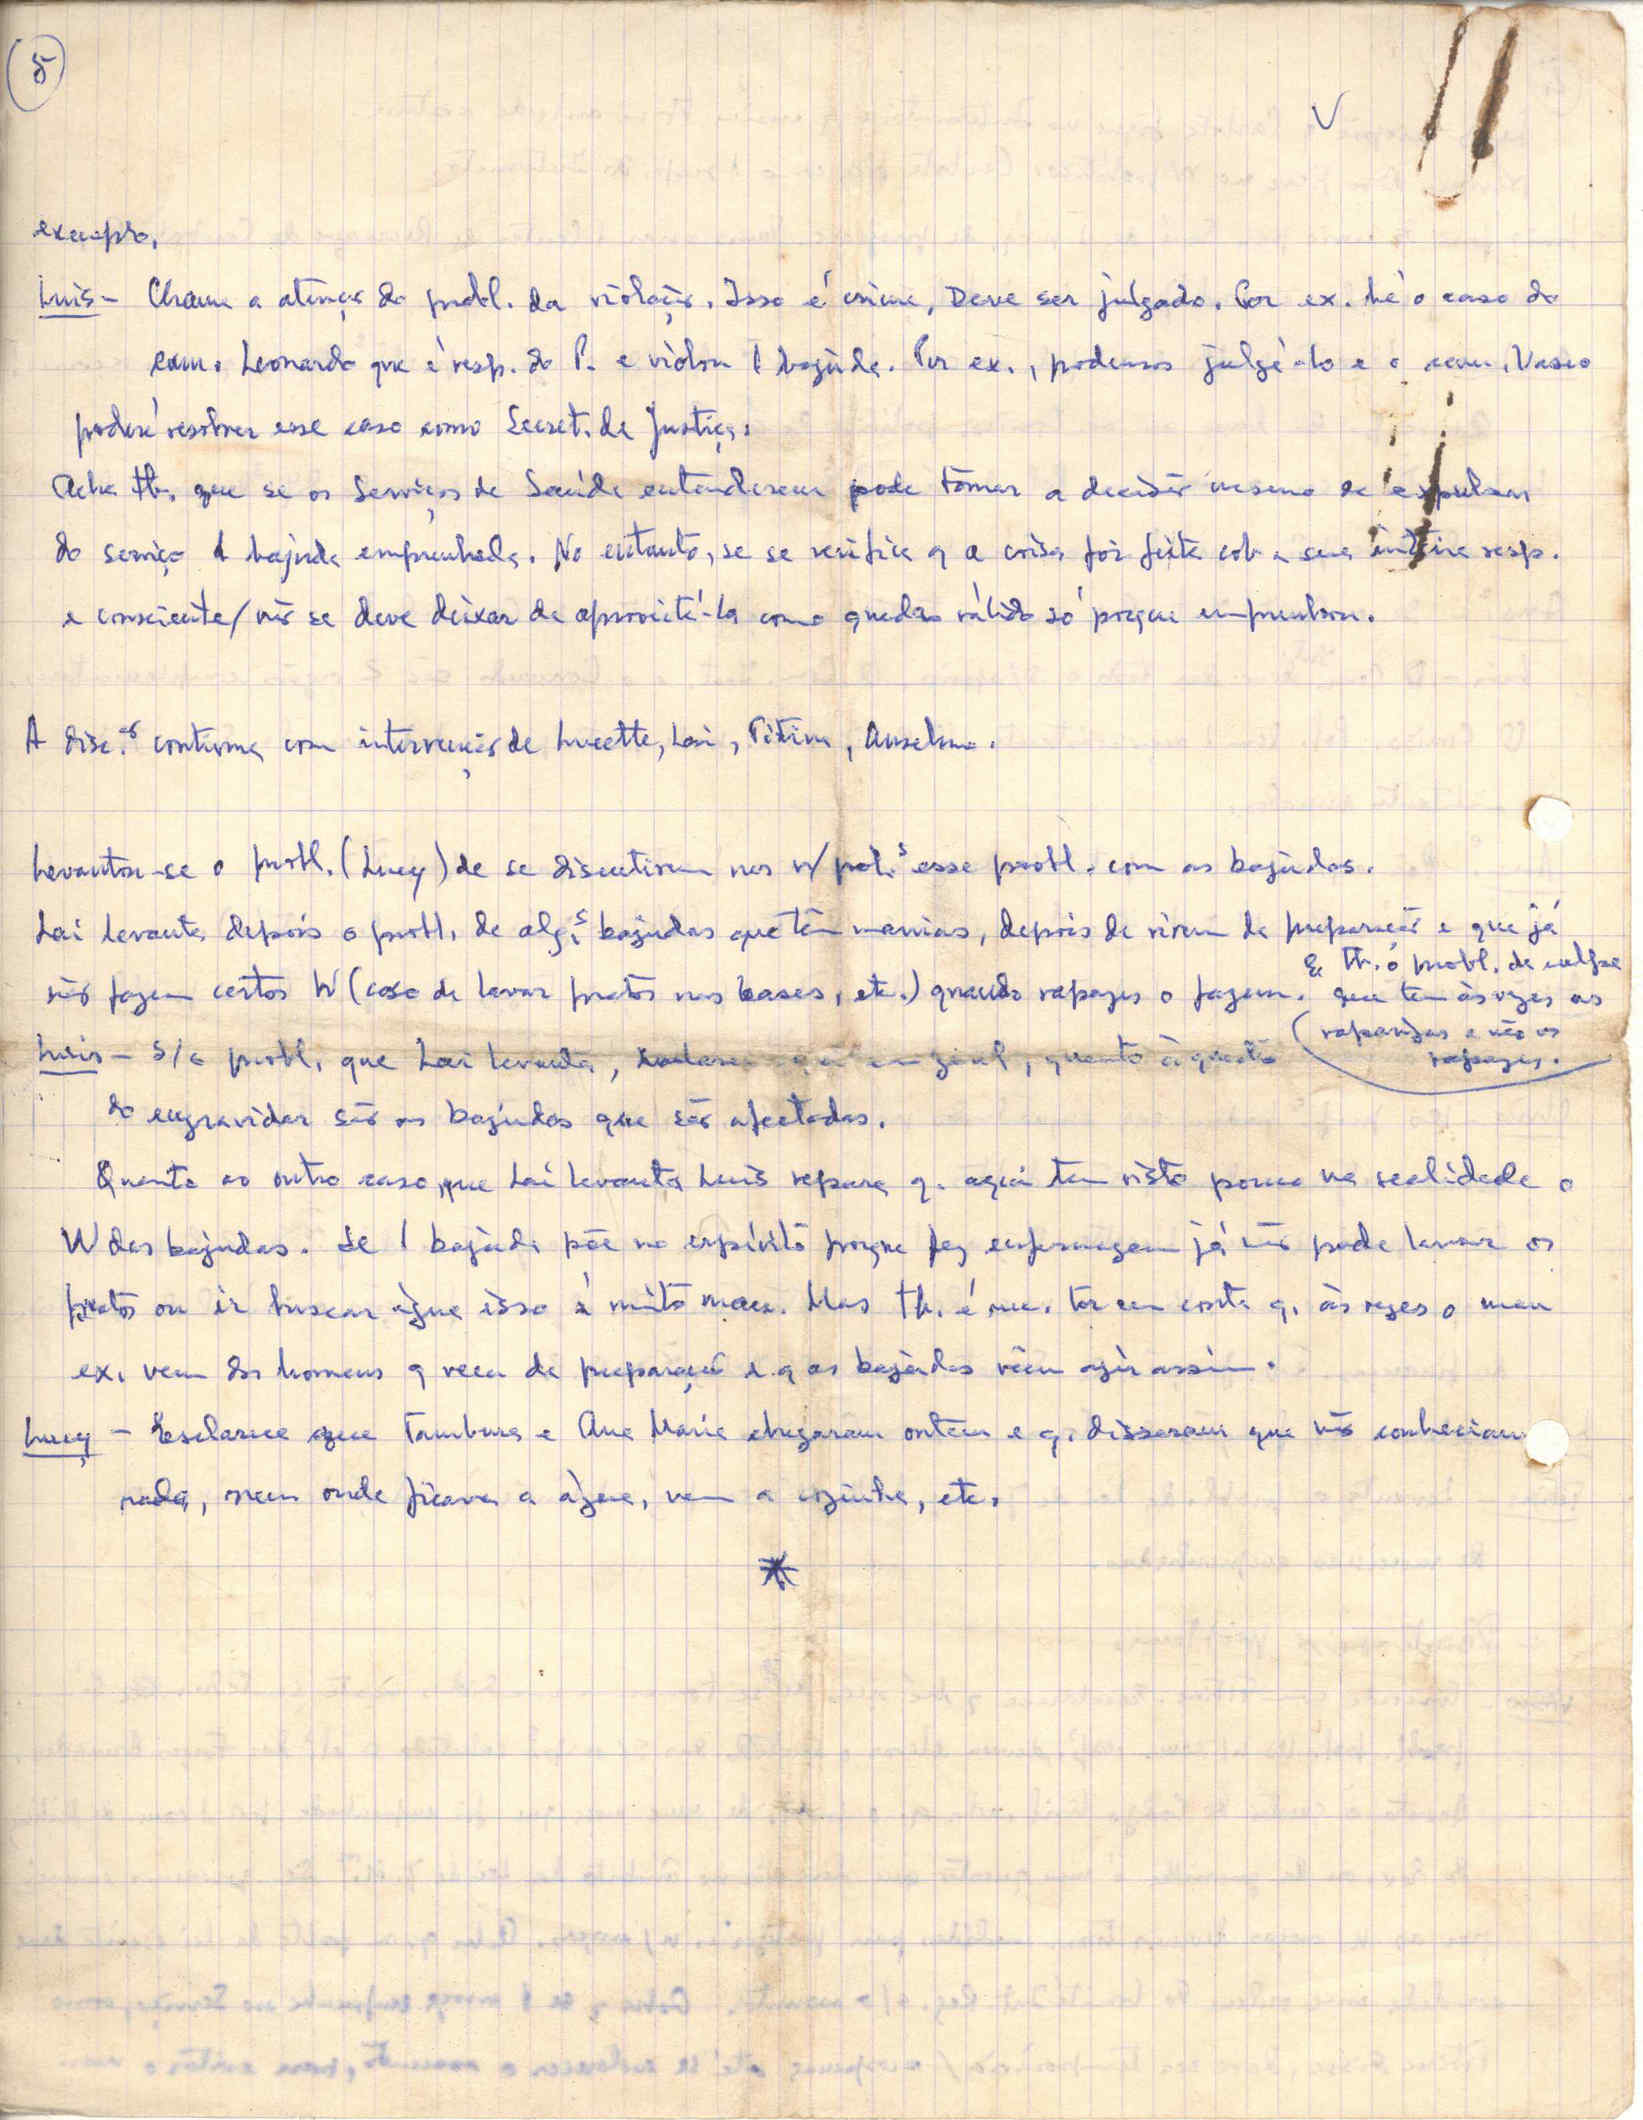 5
V
exemplo,
Luis – Chama a atenção do probl. da violação. Isso é crime, Deve ser julgado. Por ex. há o caso do
cam. Leonardo que é resp. do P. e violou 1 bajuda. Por ex., podemos julgá-lo e o cam. Vasco
poderá resolver esse caso como Secret. da Justiça.
Acha tb. que se os Serviços de Saúde entenderem pode tomar a decisão mesmo de expulsar
do serviço 1 bajuda emprenhada. No entanto, se se verifica q a coisa foi feita sob a sua inteira resp.
e consciente/ não se deve deixar de aproveitá-la como quadro válido só porque emprenhou.
A disc.ão continua com intervenção de Lucette, Lai, Titina, Anselmo.
Levantou-se o probl. (Lucy) de se discutirem nas n/ esse probl. com as bajudas.
Lai levanta depois o probl. de alg.s bajudas que têm manias, depois de virem da preparação e que já
não fazem certos W (caso de lavar pratos nas bases, etc.) quando rapazes o fazem.
E tb. o probl. de culpa
que tem às vezes as
raparigas e não os
rapazes.
Luis – S/ o probl. que Lai levanta, em geral, quanto à questão
do engravidar são as bajudas que são afectadas.
Quanto ao outro caso que Lai levanta Luis repara q. aqui tem visto pouco na realidade o
W das bajudas. Se 1 bajuda põe no espírito porque fez enfermagem já não pode lavar os
pratos ou ir buscar água isso é muito mau. Mas tb. é nec. ter em conta q. às vezes o mau
ex. vem dos homens q vêm da preparação e q as bajudas vêem agir assim.
Lucy – Esclarece que Tambura e Ana Maria chegaram ontem e q. disseram que não conheciam
nada, nem onde ficava a água, nem a cozinha, etc.
*